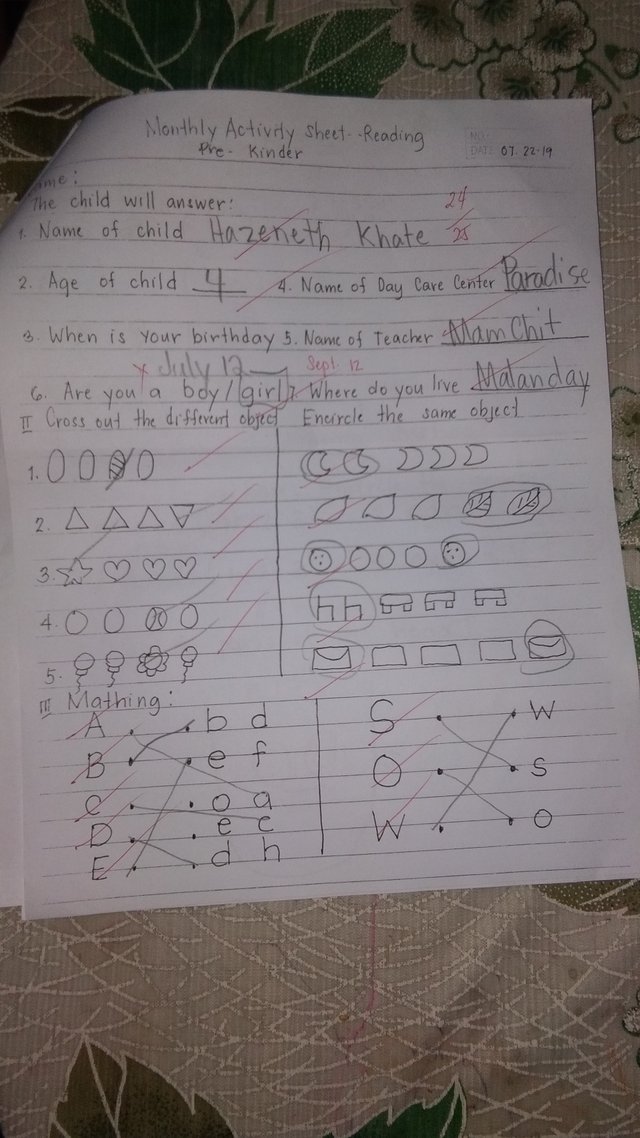 Monthly Activity Sheet - Reading
Pre - Kinder
NO.
DATE 07.22-19
ame:
The child will answer:
24
25
1. Name of child Hazeneth Khate
2. Age of child 4 4. Name of Day Care Center Paradise
3. When is your birthday 5. Name of Teacher Mam Chit
x July 12 Sept. 12
6. Are you a boy/girl 7. Where do you live Malanday
II Cross out the different object Encircle the same object
1.
2.
3.
4.
5.
III Mathing:
A b d S W
B e f O S
C o a W O
D e c
E d h